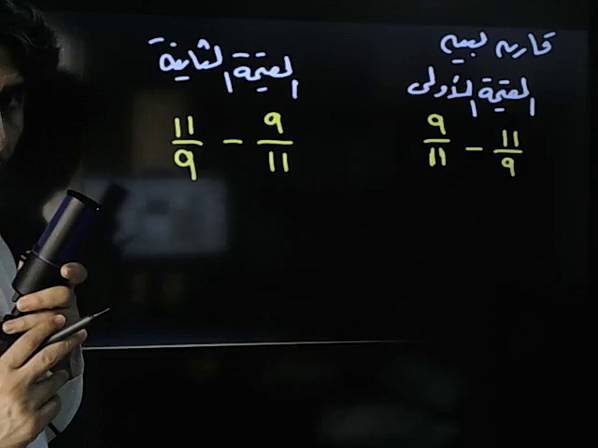 قارن بين
القيمة الأولى
9/11 - 11/9
القيمة الثانية
11/9 - 9/11